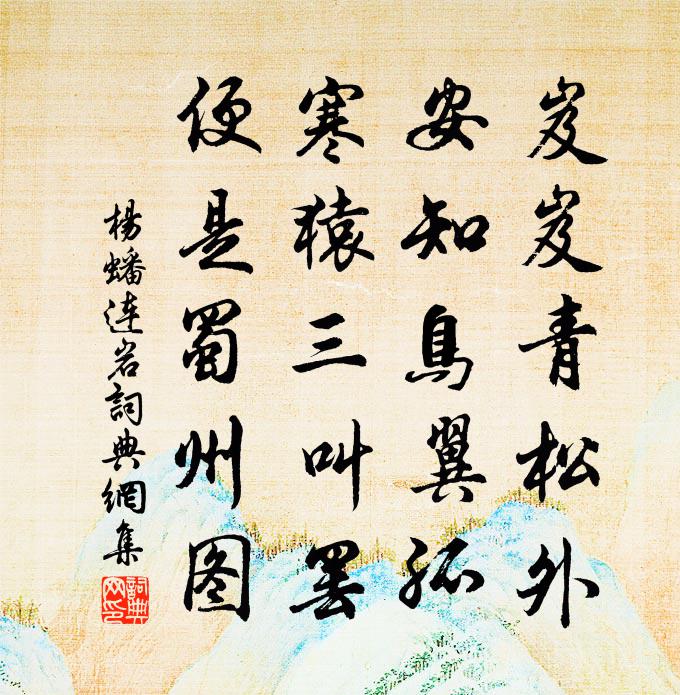 岌岌青松外
安知鳥翼孤
寒猿三叫罢
便是蜀州图
楊蟠達岩詞典網集
詞典网印